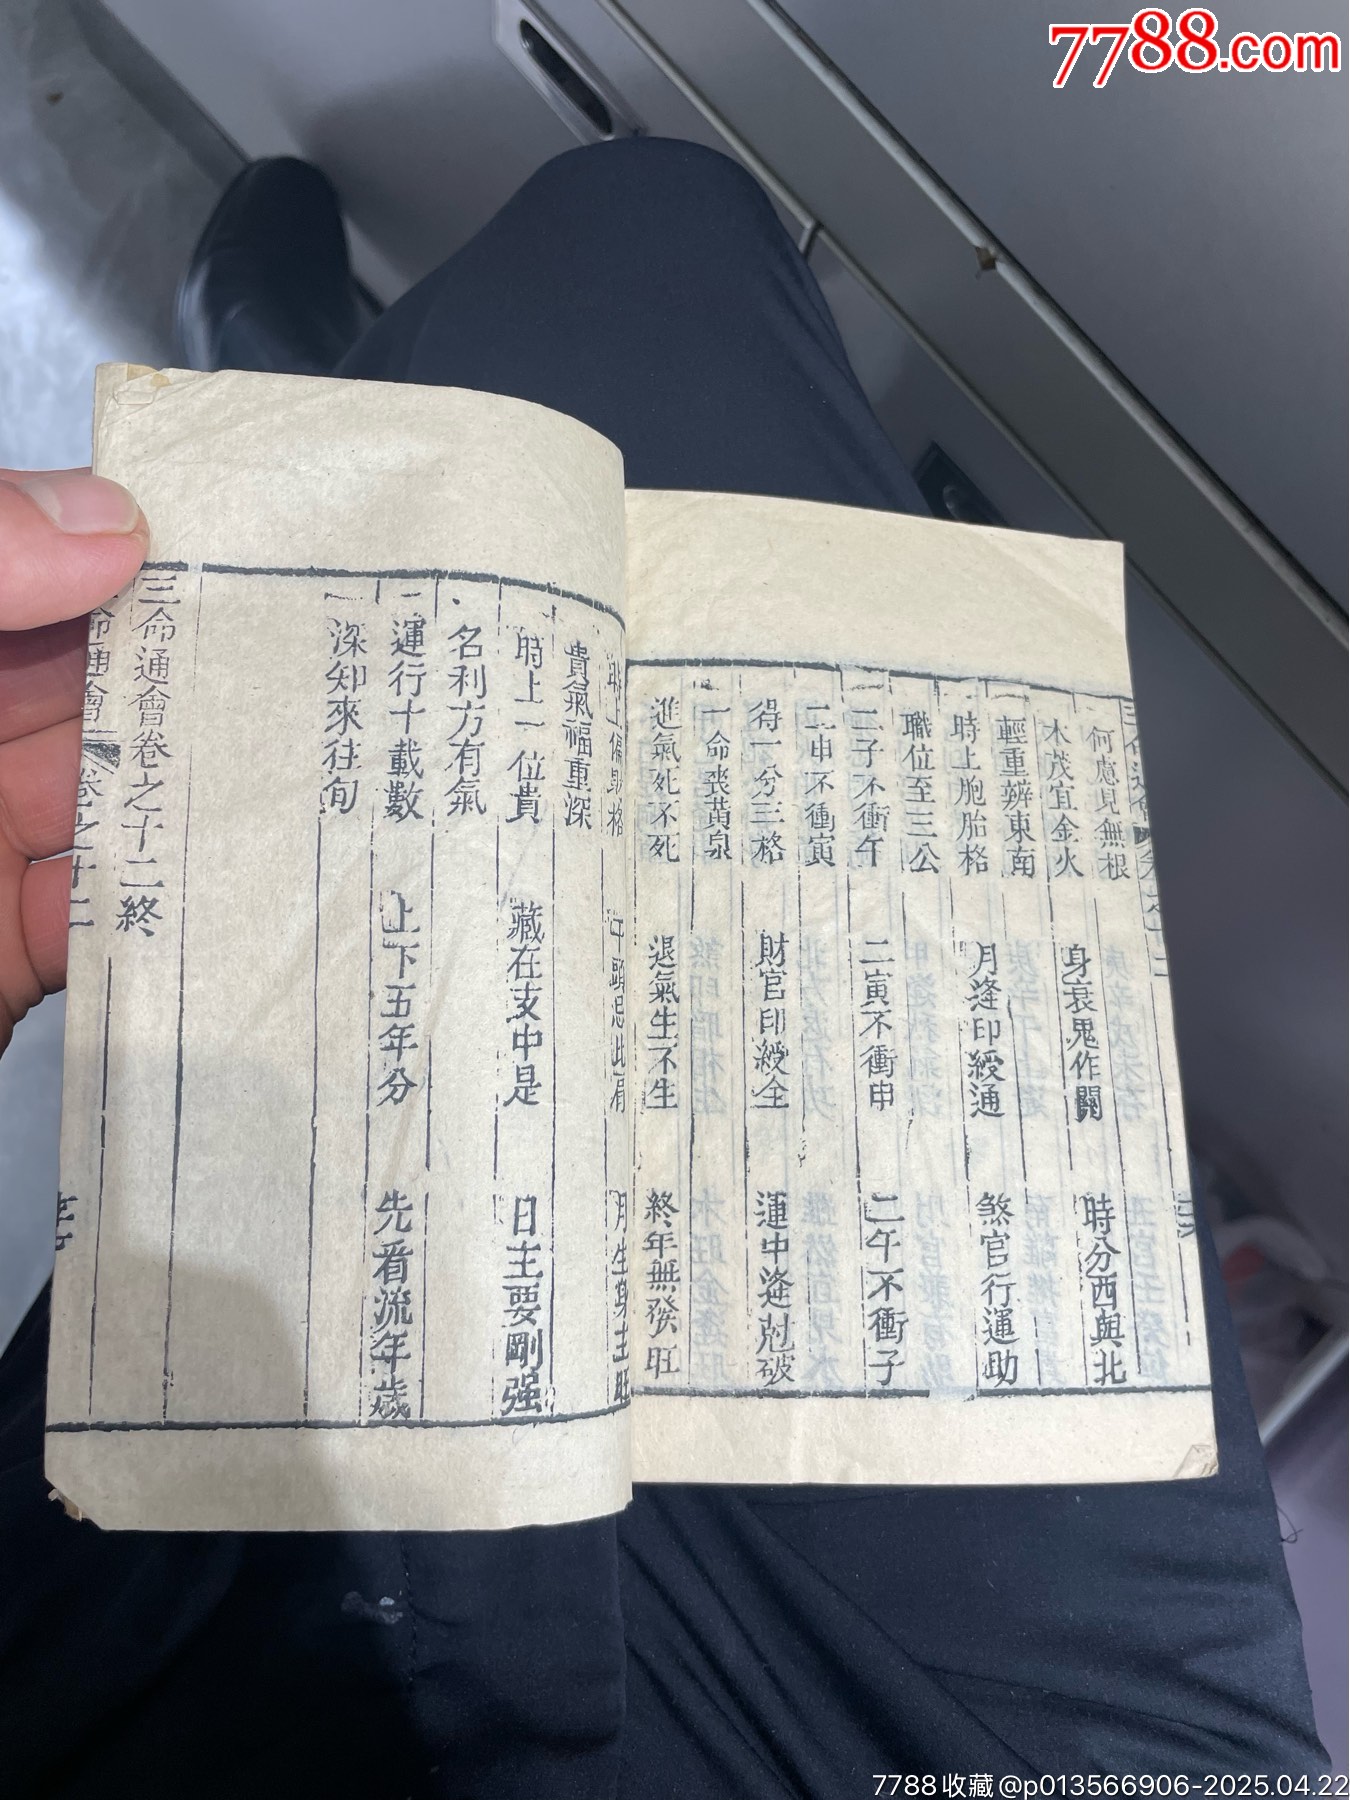 7788.com
三命通會 卷之十二
何慮見無根
木茂宜金火 身衰鬼作關 時分西與北
輕重辨東南
時上胞胎格 月逢印綬通 煞官行運助
職位至三公
二子不衝午 二寅不衝申 二午不衝子
二申不衝寅
得一分三格 財官印綬全 運中逢尅破
一命喪黃泉
進氣死不死 退氣生不生 終年無發旺
時上偏財格 干頭忌比肩 月生身主旺
貴氣福重深
時上一位貴 藏在支中是 日主要剛强
名利方有氣
運行十載數 上下五年分 先看流年歲
深知來往旬
三命通會卷之十二終
命通會 卷之十二
7788收藏@p013566906-2025.04.22